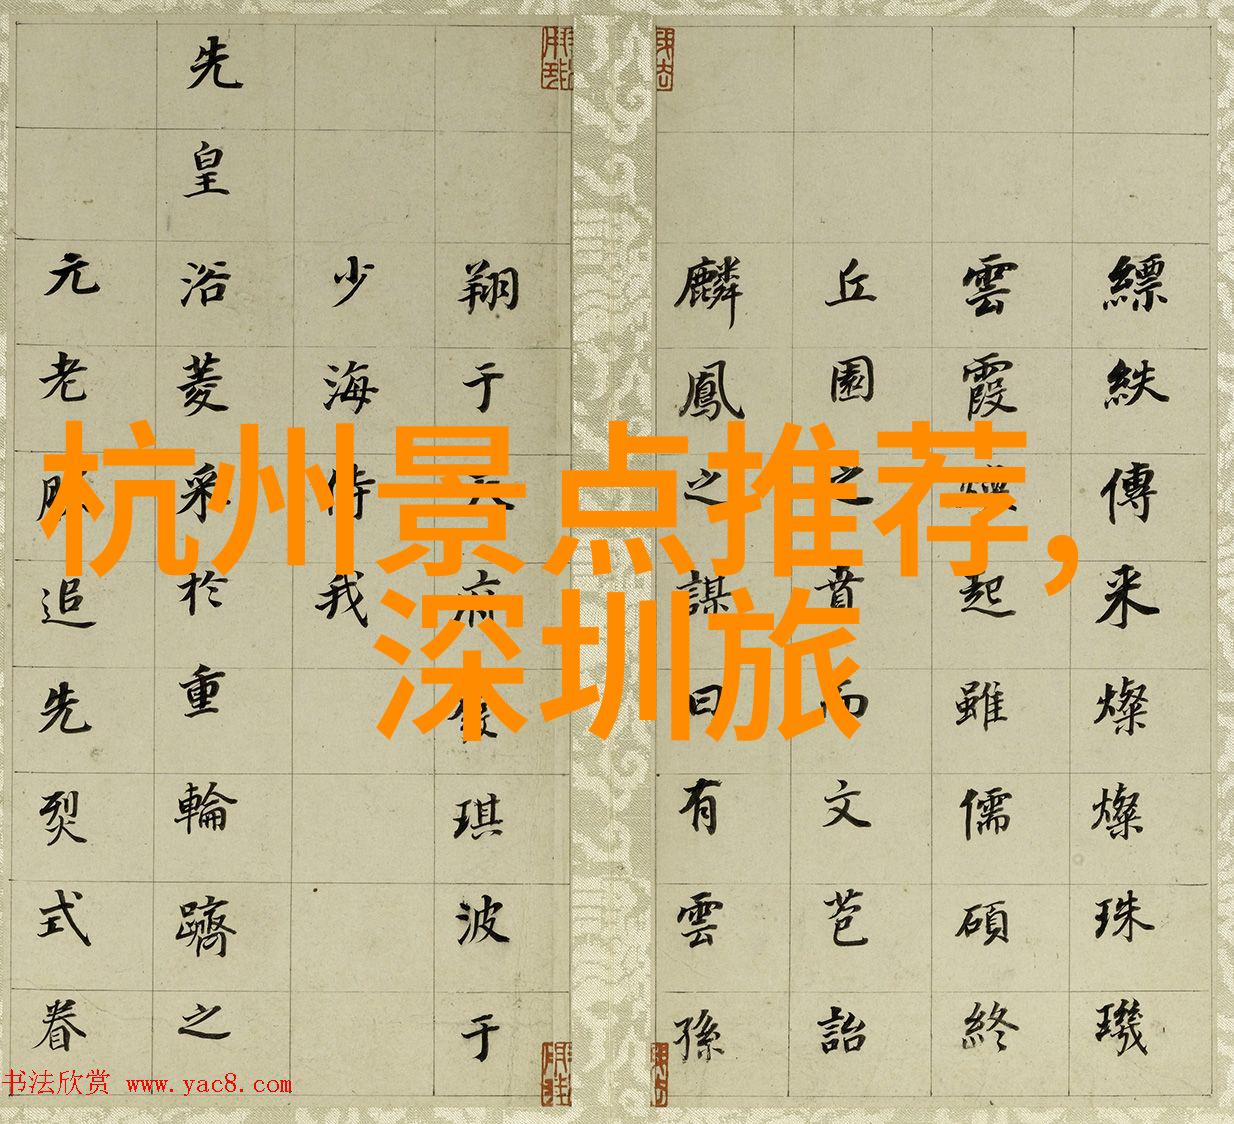 杭州景点推荐，
深圳旅
縹紩傳来燦燦珠璣
雲霞起雖儒碩終
丘園之賁而文苞詒
麟鳳之謀曰有雲孫
翔于府琪波于
少海侍我
先皇浴菱采於重輪躋之
元老追先烈式眷
书法欣赏 www.yac8.com